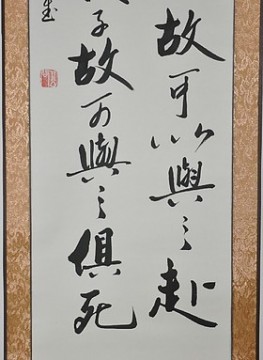 故可以與之赴
子故可與之俱死